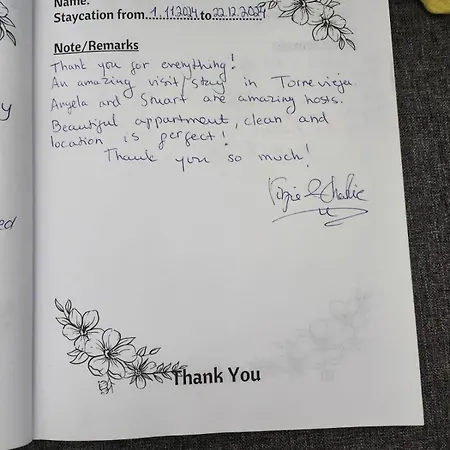 Name:
Staycation from 1.11.2024 to 22.12.2024
Note/Remarks
Thank you for everything!
An amazing visit/stay in Torrevieja
Angela and Stuart are amazing hosts.
Beautiful appartment, clean and
location is perfect!
Thank you so much!
Thank You